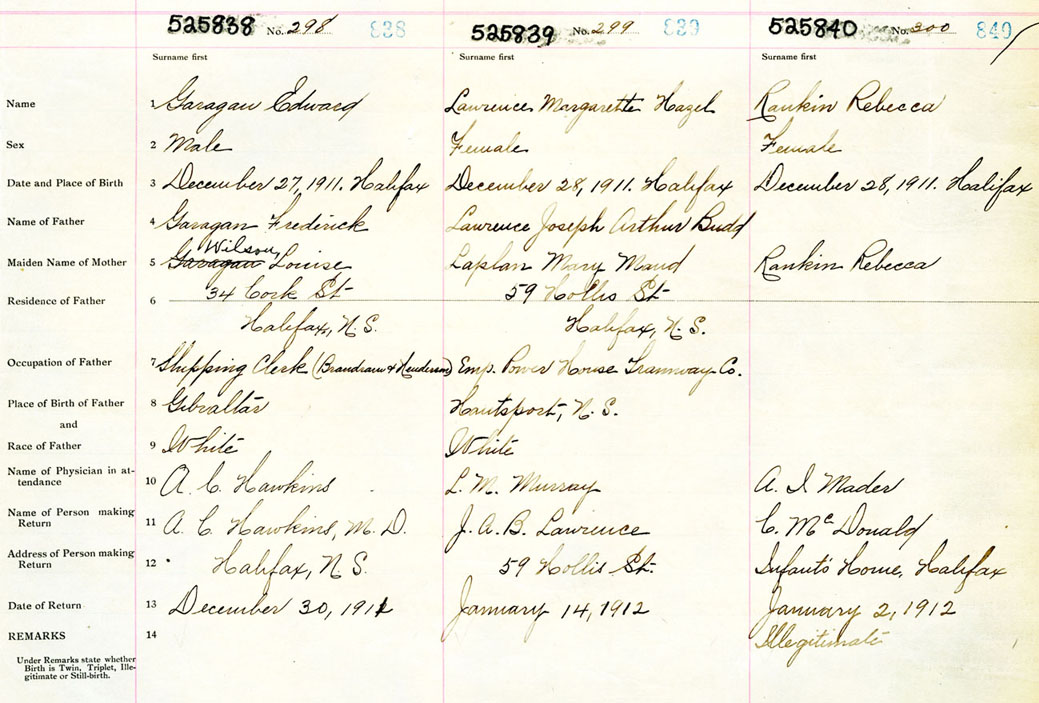 525838 No. 298 838 525839 No. 299 839 525840 No. 300 840
Surname first Surname first Surname first
Name 1 Garagan Edward Lawrence Margarette Hazel Rankin Rebecca
Sex 2 Male Female Female
Date and Place of Birth 3 December 27, 1911. Halifax December 28, 1911. Halifax December 28, 1911. Halifax
Name of Father 4 Garagan Frederick Lawrence Joseph Arthur Budd
Wilson
Maiden Name of Mother 5 Garagan Louise Laplan Mary Maud Rankin Rebecca
Residence of Father 6 34 Cork St 59 Hollis St
Halifax, N.S. Halifax, N.S.
Occupation of Father 7 Shipping Clerk (Brandram & Henderson) Emp. Power House Tramway Co.
Place of Birth of Father 8 Gibraltar Hantsport, N.S.
and
Race of Father 9 White White
Name of Physician in at-
tendance 10 A. C. Hawkins L. M. Murray A. I. Mader
Name of Person making
Return 11 A. C. Hawkins, M.D. J. A. B. Lawrence C. McDonald
Address of Person making
Return 12 Halifax, N.S. 59 Hollis St. Infants Home, Halifax
Date of Return 13 December 30, 1911 January 14, 1912 January 2, 1912
REMARKS 14 Illegitimate
Under Remarks state whether
Birth is Twin, Triplet, Ille-
gitimate or Still-birth.